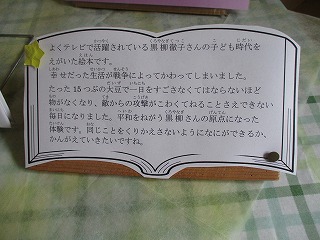 よくテレビで活躍されている黒柳徹子さんの子ども時代を
えがいた絵本です。
幸せだった生活が戦争によってかわってしまいました。
たった15つぶの大豆で一日をすごさなくてはならないほど
物がなくなり、敵からの攻撃がこわくてねることさえできない
毎日になりました。平和をねがう黒柳さんの原点になった
体験です。同じことをくりかえさないようになにができるか、
かんがえていきたいですね。